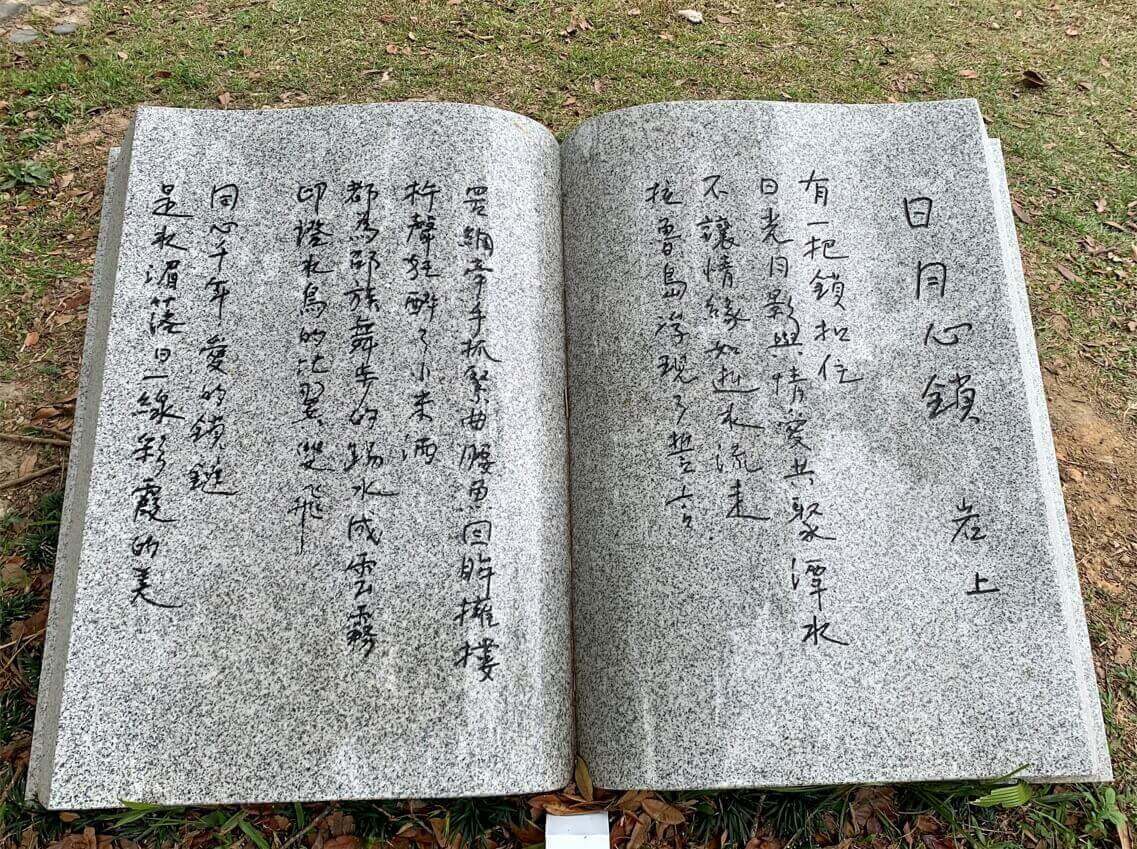 日月心鎖 岩上
有一把鎖扣住
日光月影與情愛共聚潭水
不讓情緣如逝水流走
拉魯島浮現了誓言
罟網牽手抓緊曲腰魚回眸擁摟
杵聲狂醉了小米酒
都為邵族舞步的踢水成雲霧
印證水鳥的比翼雙飛
同心千年愛的鎖鏈
是水湄落日一線彩霞的美